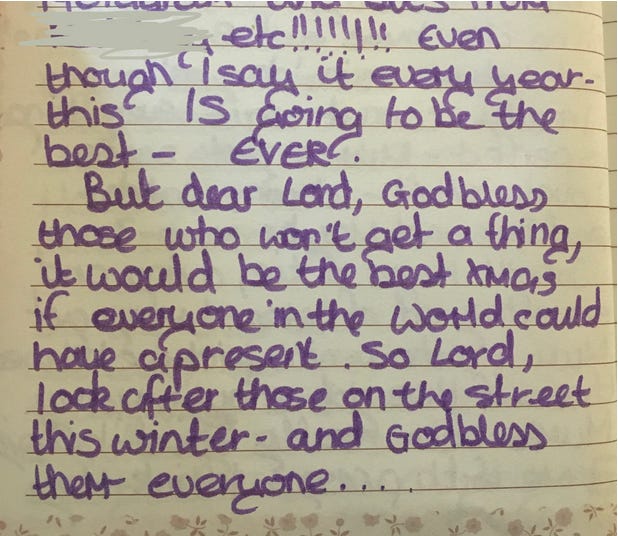 etc!!!!!!!! Even
though I say it every year-
this IS Going to be the
best - EVER.
But dear Lord, God bless
those who won't get a thing,
it would be the best XMas
if everyone in the World could
have a present. So Lord,
look after those on the street
this winter- and God bless
them everyone....